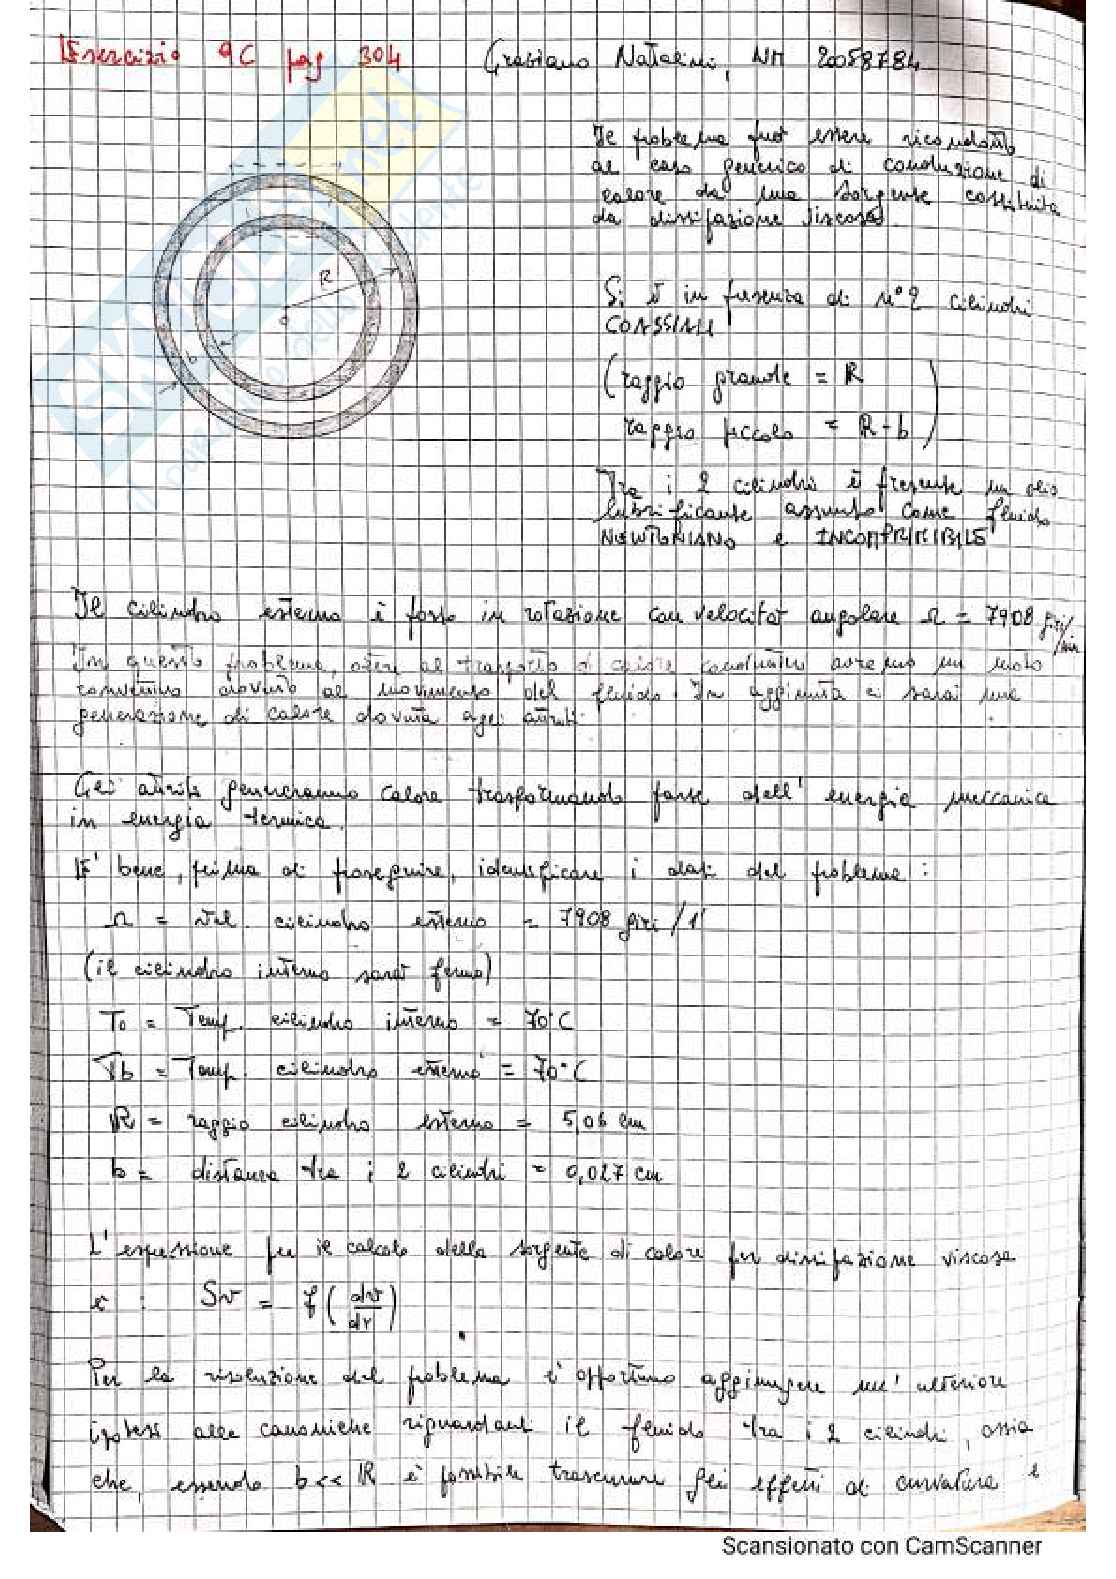 Esercizio 9C pag 304 Graziano Natalini, NH 20058784
Il problema può essere ricondotto
al caso generico di conduzione di
calore da una sorgente costituita
da dissipazione viscosa.
R
o
b
Si è in presenza di n° 2 cilindri
COASSIALI
(raggio grande = R
raggio piccolo = R-b)
Tra i 2 cilindri è presente un olio
lubrificante assunto come fluido
NEWTONIANO e INCOMPRIMIBILE
Il cilindro esterno è posto in rotazione con velocità angolare Ω = 7908 giri/min
In questo problema, oltre al trasporto di calore conduttivo avremo un moto
convettivo dovuto al movimento del fluido. In aggiunta ci sarà una
generazione di calore dovuta agli attriti.
Gli attriti genereranno calore trasformando parte dell' energia meccanica
in energia termica.
E' bene, prima di proseguire, identificare i dati del problema :
Ω = vel. cilindro esterno = 7908 giri / 1'
(il cilindro interno sarà fermo)
To = Temp. cilindro interno = 70°C
Tb = Temp. cilindro esterno = 70°C
R = raggio cilindro esterno = 5,06 cm
b = distanza tra i 2 cilindri = 0,027 cm
L' espressione per il calcolo della sorgente di calore per dissipazione viscosa
è : Sv = f (dv/dr)
Per la risoluzione del problema è opportuno aggiungere un' ulteriore
ipotesi alle canoniche riguardanti il fluido tra i 2 cilindri, ossia
che, essendo b << R è possibile trascurare gli effetti di curvatura e
Scansionato con CamScanner